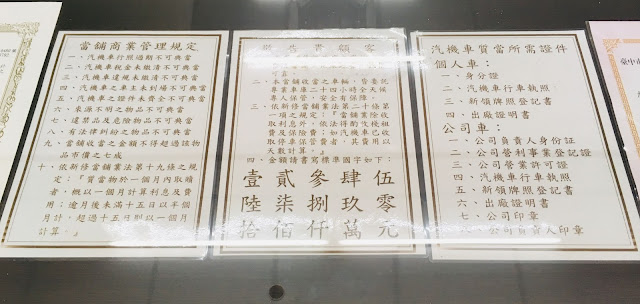 當舖商業管理規定
一、汽機車行照過期不可典當
二、汽機車稅金未繳清不可典當
三、汽機車違規未繳清不可典當
四、汽機車之車主未到場不可典當
五、汽機車之證件未齊全不可典當
六、來源不明之物品不可典當
七、違禁品及危險物品不可典當
八、有法律糾紛之物品不可典當
九、當舖收當之金額不得超過該物
品市價之七成
十、依新修當舖業法第十九條之規
定：『質當物於一個月內取贖
者，概以一個月計算利息及費
用；逾月後未滿十五日以半個
月計，超過十五日則以一個月
計算。』
敬告貴顧客
二、本當舖收當之車輛，皆委託
專業車庫二十四小時全天候
專人保管，安全有保障。
三、依新修當舖業法第二十條第
一項之規定：『當舖業除收
取利息外，依法得酌收棧租
費及保險費；如汽機車已收
取停車保管費者，其費用以
天數計算。』
四、金額請書寫標準國字如下：
壹貳參肆伍
陸柒捌玖零
拾佰仟萬元
汽機車質當所需證件
個人車：
一、身分證
二、汽機車行車執照
三、新領牌照登記書
四、出廠證明書
公司車：
一、公司負責人身份証
二、公司營利事業登記證
三、公司營業許可證
四、汽機車行車執照
五、新領牌照登記書
六、出廠證明書
七、公司印章
八、公司負責人印章
臺中市